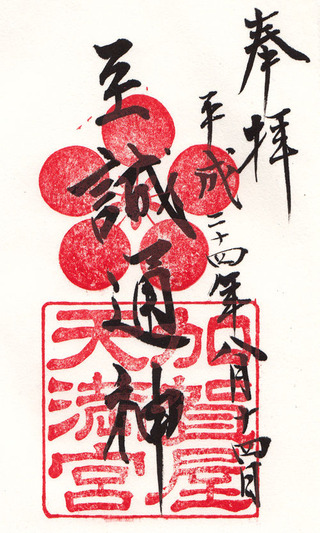 奉拝
平成二十四年八月十四日
至誠通神
加賀屋
天満宮